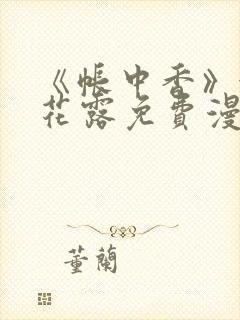 《帐中香》
花露免费漫
董兰